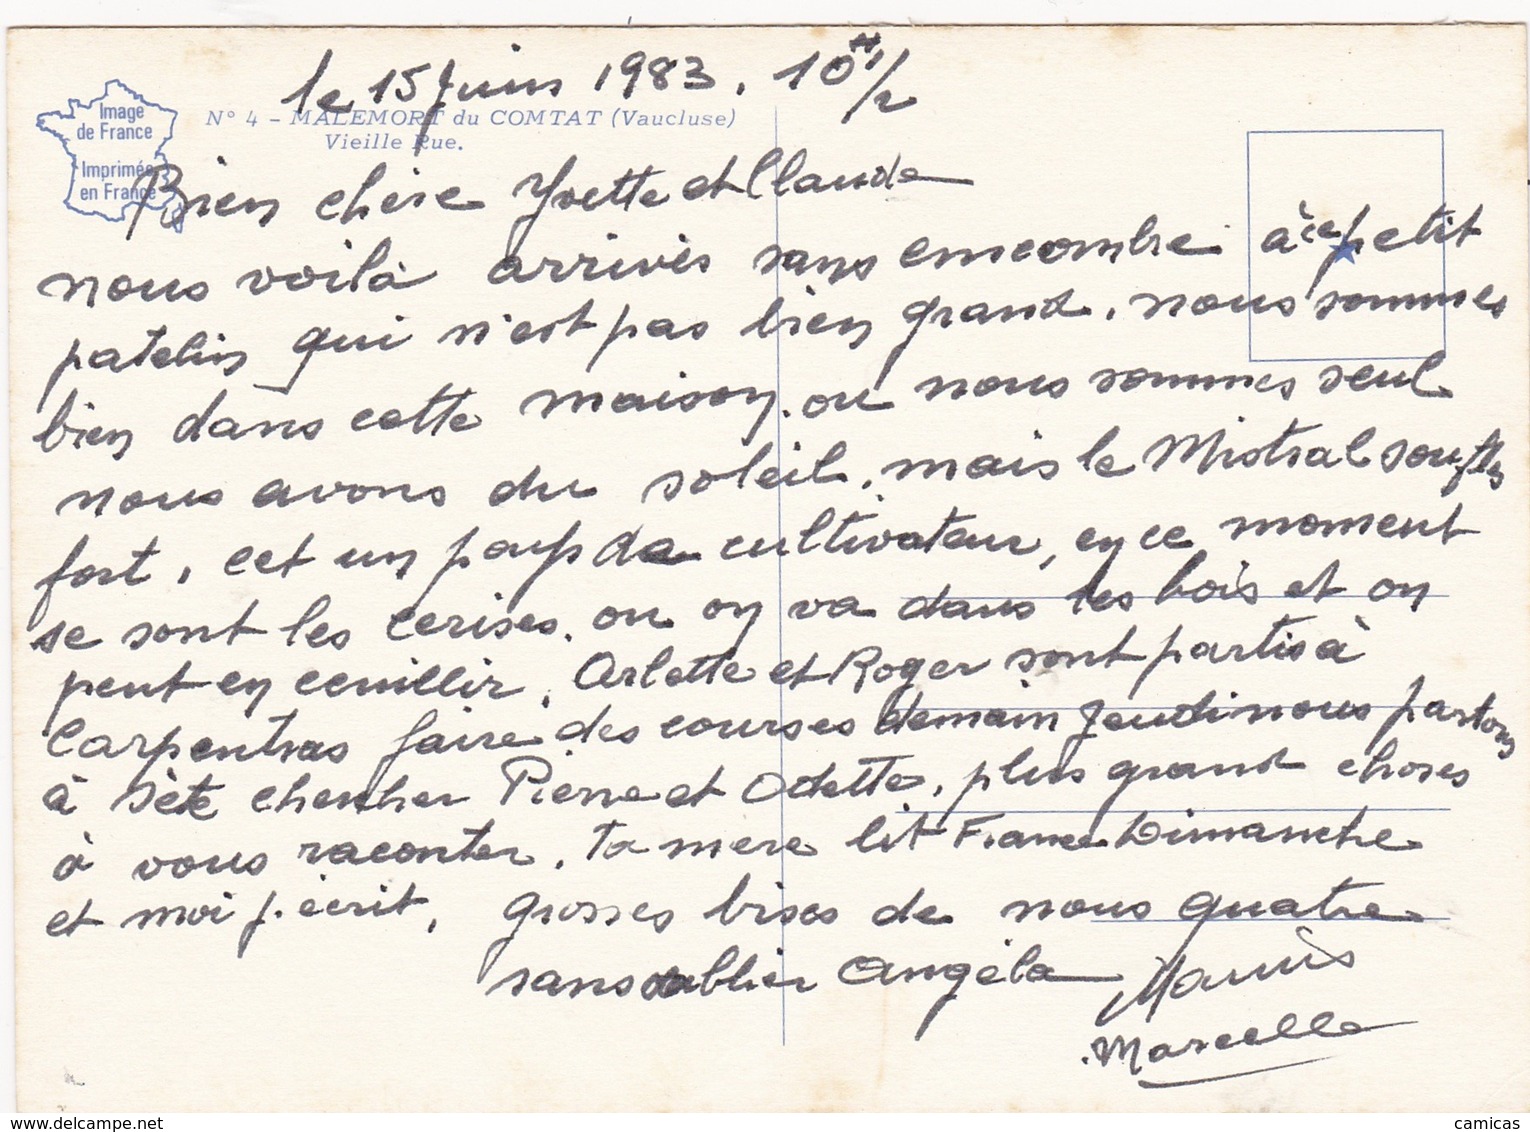 le 15 Juin 1983. 10H 1/2
Image
de France
Imprimée
en France
N° 4 - MALEMORT du COMTAT (Vaucluse)
Vieille Rue.
Bien chère Yvette et Claude
nous voilà arrivés sans encombre à ce petit
patelin qui n'est pas bien grand. nous sommes
bien dans cette maison. ou nous sommes seul
nous avons du soleil. mais le Mistral souffle
fort, cet un pays de cultivateur, en ce moment
se sont les cerises. ou on va dans les bois et on
peut en ceuillir. Arlette et Roger sont partis à
Carpentras faire des courses demain Jeudi nous partons
à Sète chercher Pierre et Odette, plus grand choses
à vous raconter. Ta mere lit France Dimanche
et moi j'écrit, grosses bises de nous quatre
sans oublier Angéla Marius
Marcelle
www.delcampe.net
camicas